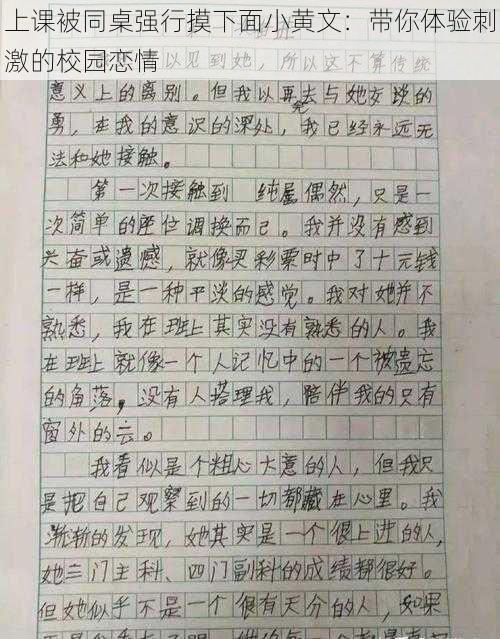 上课被同桌强行摸下面小黄文：带你体验刺
激的校园恋情
以见到她，所以这不算传统
意义上的离别。但我以再去与她交谈的
勇，在我的意识的深处，我已经永远无
法和她接触。
第一次接触到 纯属偶然，只是一
次简单的座位调换而已。我并没有感到
兴奋或遗憾，就像买彩票时中了十元钱
一样，是一种平淡的感觉。我对她并不
熟悉，我在班上其实没有熟悉的人。我
在班上就像一个人记忆中的一个被遗忘
的角落，没有人搭理我，陪伴我的只有
窗外的云。
我看似是个粗心大意的人，但我只
是把自己观察到的一切都藏在心里。我
渐渐的发现，她其实是一个很上进的人，
她三门主科、四门副科的成绩都很好。
但她似乎不是一个很有天分的人，如果